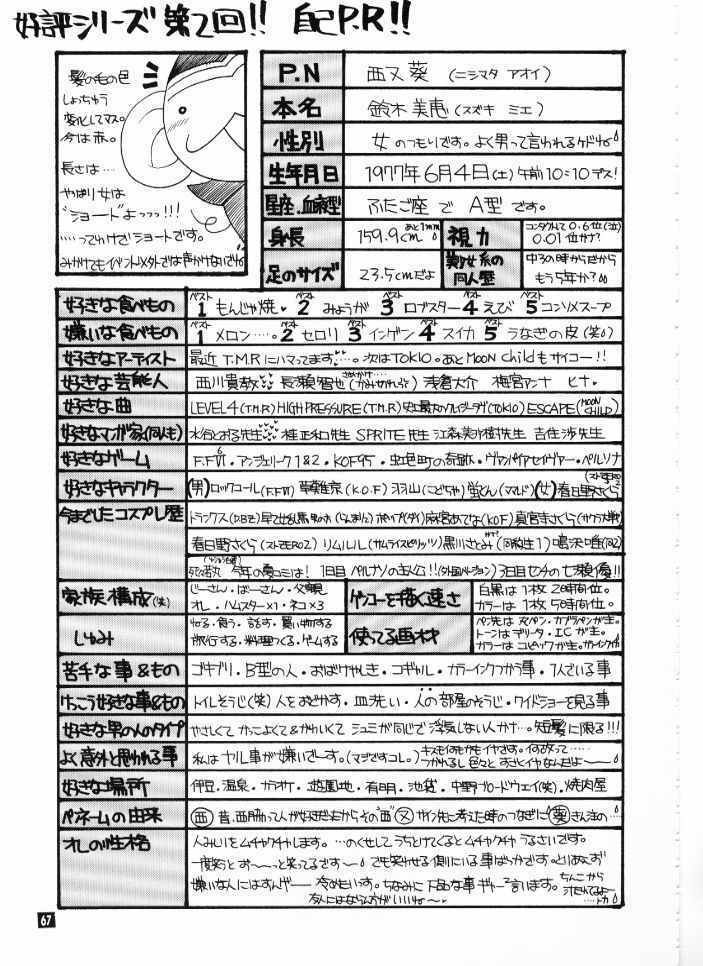 好評シリーズ第2回!! 自己P.R!!
髪の毛の色
しょっちゅう
変化してマス。
今は赤。
長さは…
やはり女は
"ショート"よっっっ!!!
……ってわけでショートです。
みかけてもイベント以外では声かけないでね
P.N 西又葵(ニシマタ アオイ)
本名 鈴木美恵(スズキ ミエ)
性別 女のつもりです。よく男って言われるケドね
生年月日 1977年6月4日(土)午前10:10デス!
星座、血液型 ふたご座で A型です。
身長 159.9cm あと1mm 視力 コンタクトして0.6位(泣) 0.01位かな?
足のサイズ 23.5cmだよ 美少女系の同人歴 中3の時からだから もう5年か?
好きな食べもの ベスト1 もんじゃ焼 ベスト2 みょうが ベスト3 ロブスター ベスト4 えび ベスト5 コンソメスープ
嫌いな食べもの ベスト1 メロン…。ベスト2 セロリ ベスト3 インゲン ベスト4 スイカ ベスト5 うなぎの皮(笑)
好きなアーティスト 最近T.M.Rにハマってます…。次はTOKIO。あとMOON Childもサイコー!!
好きな芸能人 西川貴教 長瀬智也 浅倉大介 梅宮アンナ ヒナ
好きな曲 LEVEL4(T.M.R) HIGH PRESSURE(T.M.R) (TOKIO) ESCAPE(MOON CHILD)
好きなマンガ家(同人も) 水谷とおる先生 桂正和先生 SPRITE先生 江森美沙樹先生 吉住渉先生
好きなゲーム F.F.VI・アンジェリーク1&2・KOF95・虹色町の奇跡・ヴァンパイアセイヴァー・ペルソナ
好きなキャラクター (男)ロックコール(F.F.VI) 草薙京(K.O.F) 羽山(こどちゃ) 蛍どん(ママレド) (女)春日野さくら(ストZERO2)
今までしたコスプレ歴 トランクス(D.B.Z) 早乙女乱馬 男のみ(らんま1/2) ポップ(ダイ) 麻宮あてな(KOF) 真宮寺さくら(サクラ大戦)
春日野さくら(ストZERO2) リムルル(サムライスピリッツ) 黒川さとみ(同級生1) 鳴沢唯(同2)
今年の夏コミは! 1日目ペルソナの主人公!! 3日目センチの七瀬優!!
家族構成(笑) じーさん・ばーさん・父・母・兄
オレ・ハムスター×1・ネコ×3
ゲンコーを描く速さ 白黒は1枚2時間位。
カラーは1枚5時間位。
しゅみ ねる・食う・話す・買い物する
旅行する・料理つくる・ゲームする
使ってる画材 ペン先は丸ペン・カブラペンが主。
トーンはデリータ・ICが主。
カラーはコピックが主。カラーインクも
苦手な事&もの ゴキブリ・B型の人・おばけやしき・コギャル・カラーインクつかう事・1人でいる事
けっこう好きな事&もの トイレそうじ(笑) 人をおどかす・皿洗い・人の部屋のそうじ・ワイドショーを見る事
好きな男の人のタイプ やさしくてかっこよくて&かわいくてシュミが同じで浮気しない人かナ…。短髪に限る!!!
よく意外と思われる事 私はヤル事が嫌いでーす。(マジですコレ。)
好きな場所 伊豆・温泉・カラオケ・遊園地・有明・池袋・中野ブロードウェイ(笑)・焼肉屋
ペネームの由来 (西)昔、西脇って人が好きだったからその"西" (又)サイン先に考えた時のつなぎに (葵)さん注の…
オレの性格 人みしりをムチャクチャします。…のくせしてうちとけてくるとムチャクチャうるさいです。
一度笑うとずーーっと笑ってるです〜 でも笑わせる側にいる事ばっかです。とりあえず
嫌いな人にはすんげー冷めたいす。ちなみに下品な事ギャーギャー言います。
友人にはならん方がいいね〜
67